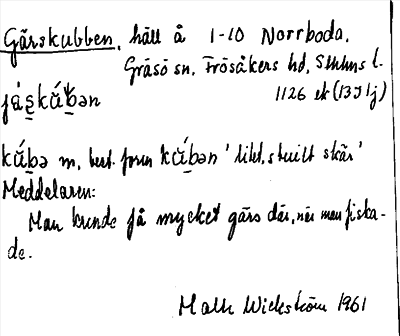 Gärskubben, häll å 1-10 Norrboda,
Gräsö sn, Frösåkers hd, Sthlms l.
1126 ek (13I 1j)
kǘbə m, best. form kǘbən 'litet, s skär'
Meddelaren:
Man kunde få mycket gärs där, när man fiska-
de.
Wickström 1961